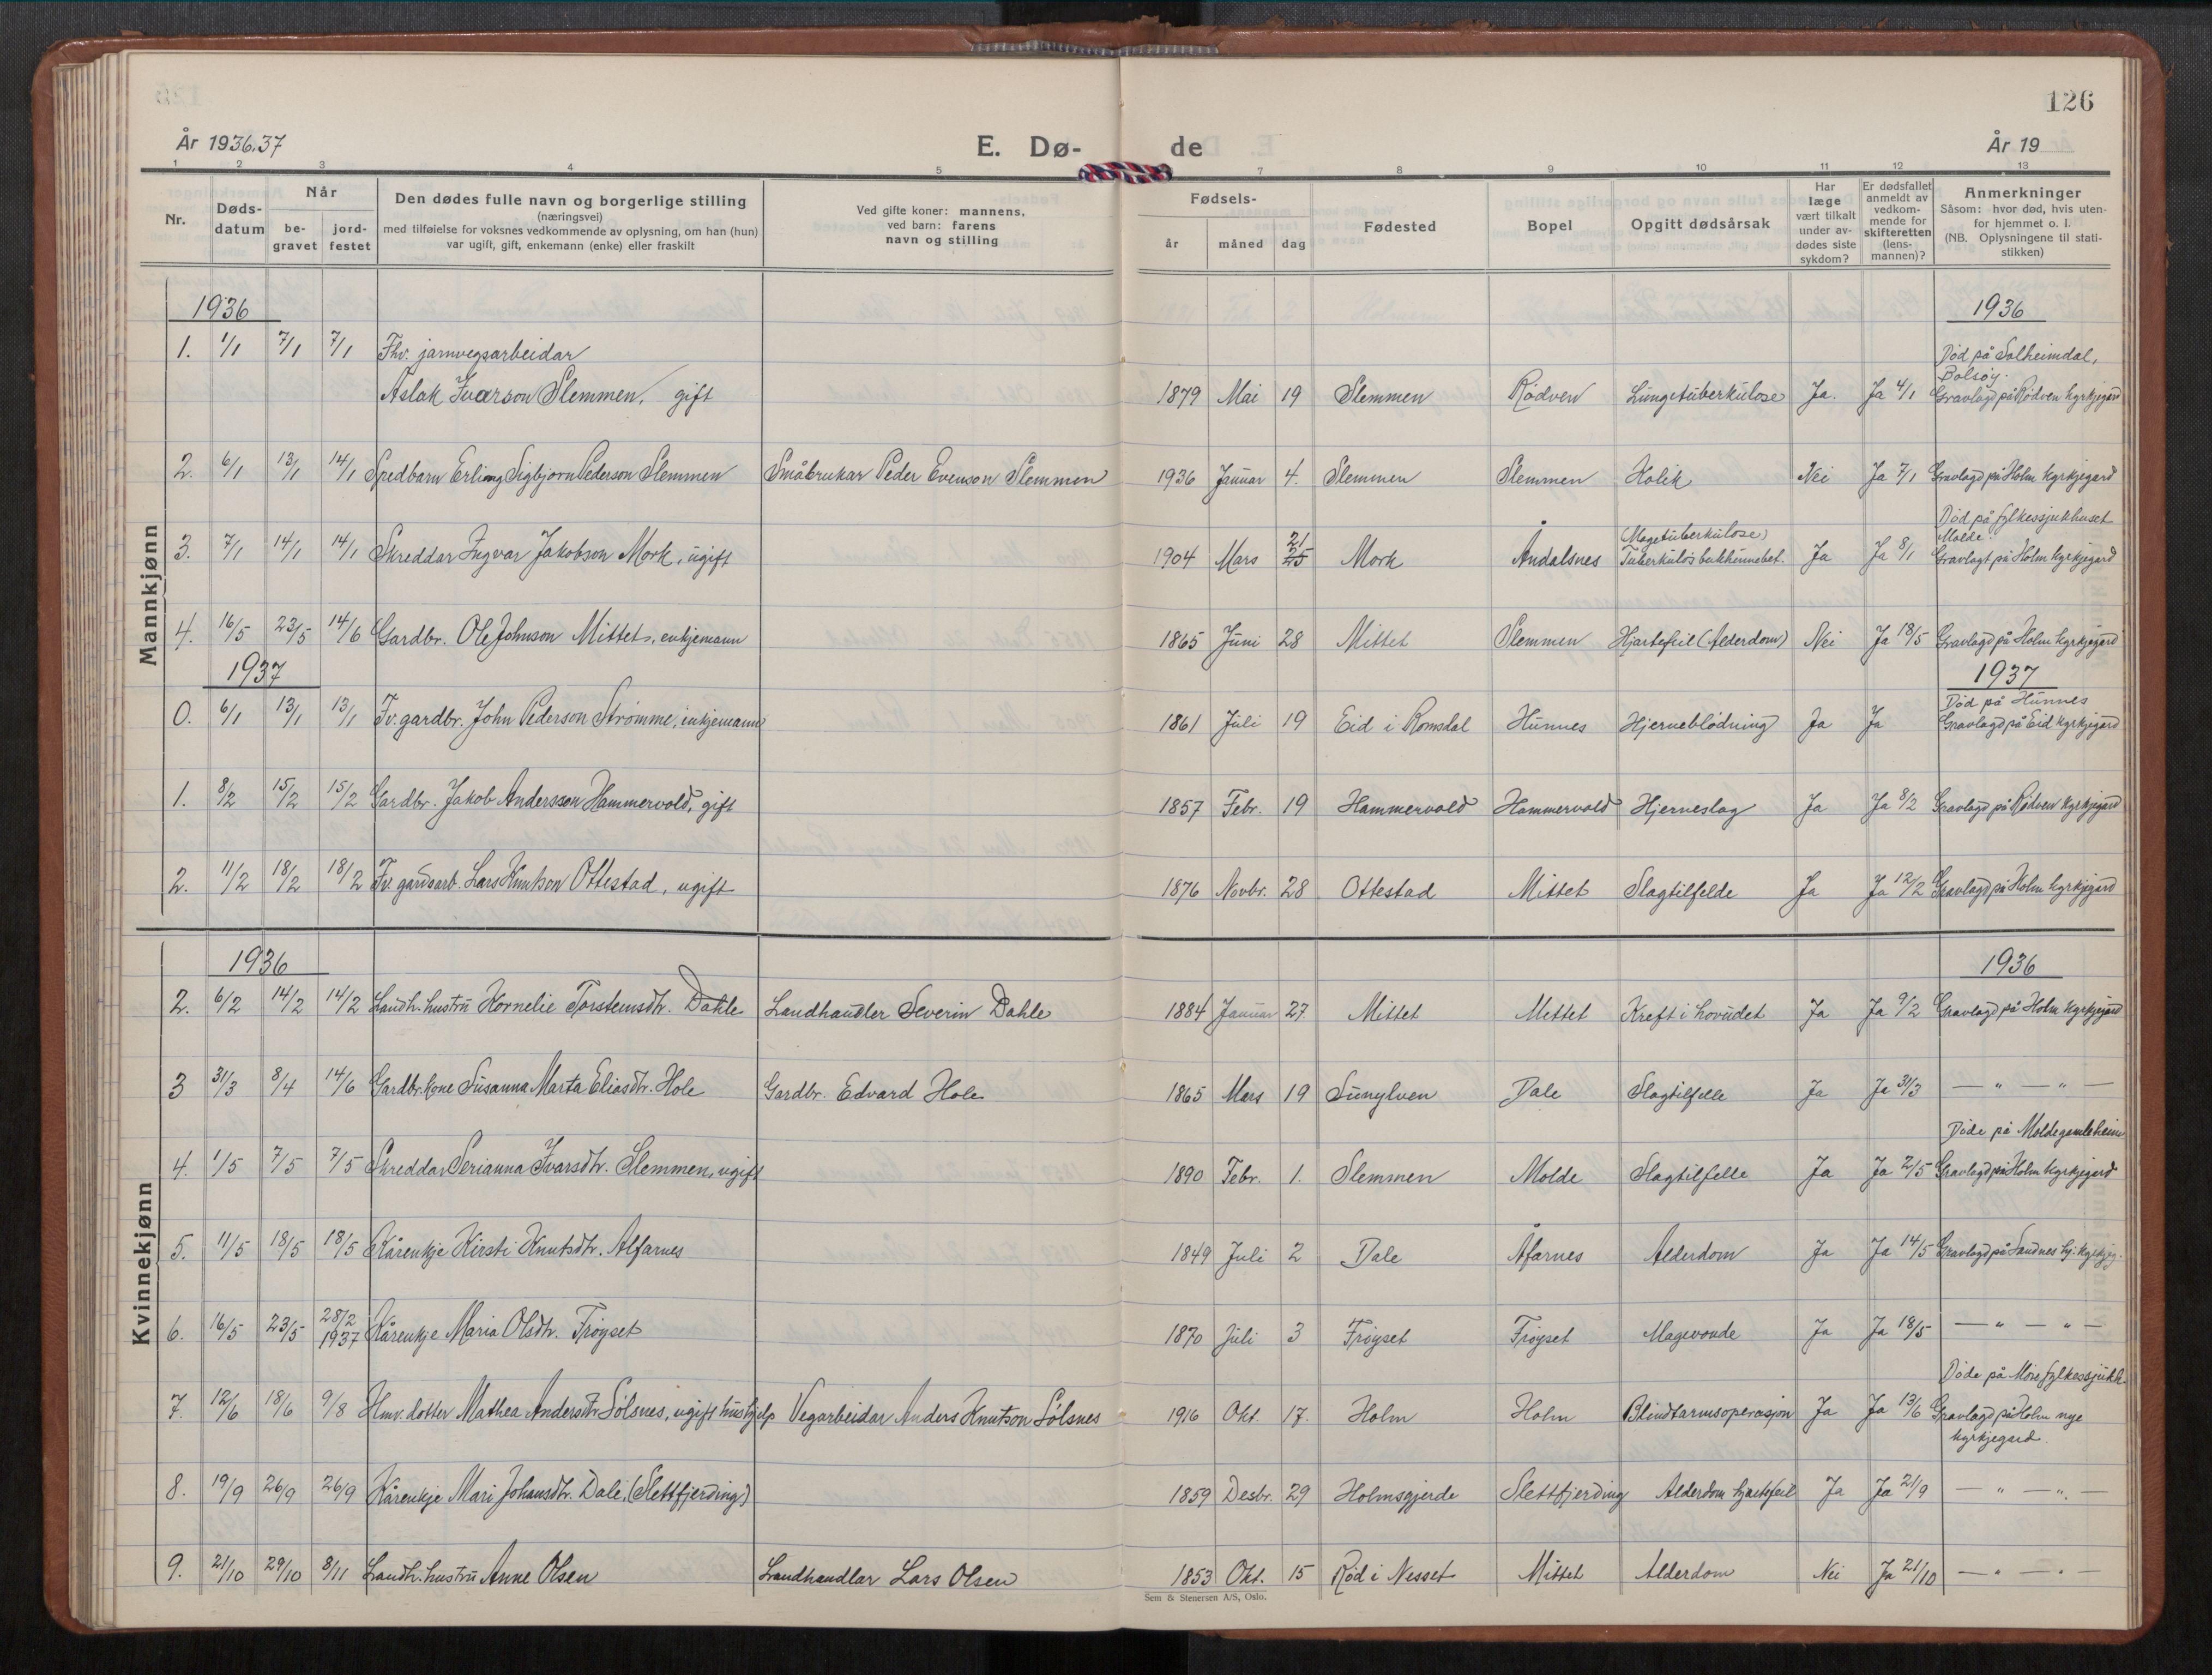 126
År 1936.37
E. Dø- de
År 19
1 2 3 4 5 7 8 9 10 11 12 13
Nr.
Døds-datum
Når
be-gravet
jord-festet
Den dødes fulle navn og borgerlige stilling
(næringsvei)
med tilføielse for voksnes vedkommende av oplysning, om han (hun)
var ugift, gift, enkemann (enke) eller fraskilt
Ved gifte koner: mannens,
ved barn: farens
navn og stilling
Fødsels-
år måned dag
Fødested
Bopel
Opgitt dødsårsak
Har læge vært tilkalt under av-dødes siste sykdom?
Er dødsfallet anmeldt av vedkom-mende for skifteretten (lens-mannen)?
Anmerkninger
Såsom: hvor død, hvis uten-
for hjemmet o. l.
(NB. Oplysningene til stati-
stikken)
Mannkjønn
1936 1936
1. 1/1 7/1 7/1 Fhv. jarnvegsarbeidar Død på Solheimdal,
Bolsøy.
Aslak Ivarson Slemmen, gift 1879 Mai 19 Slemmen Rødven Lungetuberkulose Ja. Ja 4/1 Gravlagd på Rødven kyrkjegard
2. 6/1 13/1 14/1 Spedbarn Erling Sigbjørn Pederson Slemmen Småbrukar Peder Evenson Slemmen 1936 Januar 4. Slemmen Slemmen Kolik Nei Ja 7/1 Gravlagd på Holm kyrkjegard
Død på fylkessjukhuset
21 (Magetuberkulose) Molde.
3. 7/1 14/1 14/1 Skreddar Ingvar Jakobson Mork, ugift 1904 Mars 25 Mork Åndalsnes Tuberkuløs bukhinnebet. Ja Ja 8/1 Gravlagt på Holm kyrkjegard
4. 16/5 23/5 14/6 Gardbr. Ole Johnson Mittet, enkjemann 1865 Juni 28 Mittet Slemmen Hjartefeil (Alderdom) Nei Ja 18/5 Gravlagd på Holm kyrkjegard
1937 1937
Død på Hunnes
0. 6/1 13/1 13/1 Fv. gardbr. John Pederson Strømme, enkjemann 1861 Juli 19 Eid i Romsdal Hunnes Hjerneblødning Ja Ja Gravlagd på Eid kyrkjegard
1. 8/2 15/2 15/2 Gardbr. Jakob Andersson Hammervold, gift 1857 Febr. 19 Hammervold Hammervold Hjerneslag Ja Ja 8/2 Gravlagd på Rødven kyrkjegard
2. 11/2 18/2 18/2 Fv. gardsarb. Lars Knutson Ottestad, ugift 1876 Novbr. 28 Ottestad Mittet Slagtilfelde Ja Ja 12/2 Gravlagd på Holm kyrkjegard
Kvinnekjønn
1936 1936
2. 6/2 14/2 14/2 Landh. hustru Kornelie Torsteinsdtr. Dahle Landhandler Severin Dahle 1884 Januar 27. Mittet Mettet Kreft i hovudet Ja Ja 9/2 Gravlagd på Holm kyrkjegard
3 31/3 8/4 14/6 Gardbr. kone Susanna Marta Eliasdtr. Hole Gardbr. Edvard Hole 1865 Mars 19 Sunylven Dale Slagtilfelle Ja Ja 31/3 — " — " —
Døde på Molde gamleheim
4. 1/5 7/5 7/5 Skreddar Serianna Ivarsdtr. Slemmen, ugift 1890 Febr. 1. Slemmen Molde Slagtilfelle Ja Ja 2/5 Gravlagd på Holm kyrkjegard
5. 11/5 18/5 18/5 Kårenkje Kirsti Knutsdtr. Alfarnes 1849 Juli 2 Dale Åfarnes Alderdom Ja Ja 14/5 Gravlagd på Sandnes kyrkjeg.
6. 16/5 23/5 28/2 1937 Kårenkje Maria Olsdtr. Frøyset 1870 Juli 3 Frøyset Frøyset Magevonde Ja Ja 18/5 — " — " —
Døde på Møre fylkessjukh.
7. 12/6 18/6 9/8 Hmv. dotter Mathea Andersdtr. Sølsnes, ugift hushjelp Vegarbeidar Anders Knutson Sølsnes 1916 Okt. 17. Holm Holm Blindtarmsoperasjon Ja Ja 13/6 Gravlagd på Holm nye
kyrkjegard.
8. 19/9 26/9 26/9 Kårenkje Mari Johansdtr. Dale, (Slettfjerding) 1859 Desbr. 29 Holmsgjerde Slettfjerding Alderdom hjartefeil Ja Ja 21/9 — " — " —
9. 21/10 29/10 8/11 Landh. hustru Anne Olsen Landhandlar Lars Olsen 1853 Okt. 15 Rød i Nesset Mittet Alderdom Nei Ja 21/10 — " — " —
Sem & Stenersen A/S, Oslo.